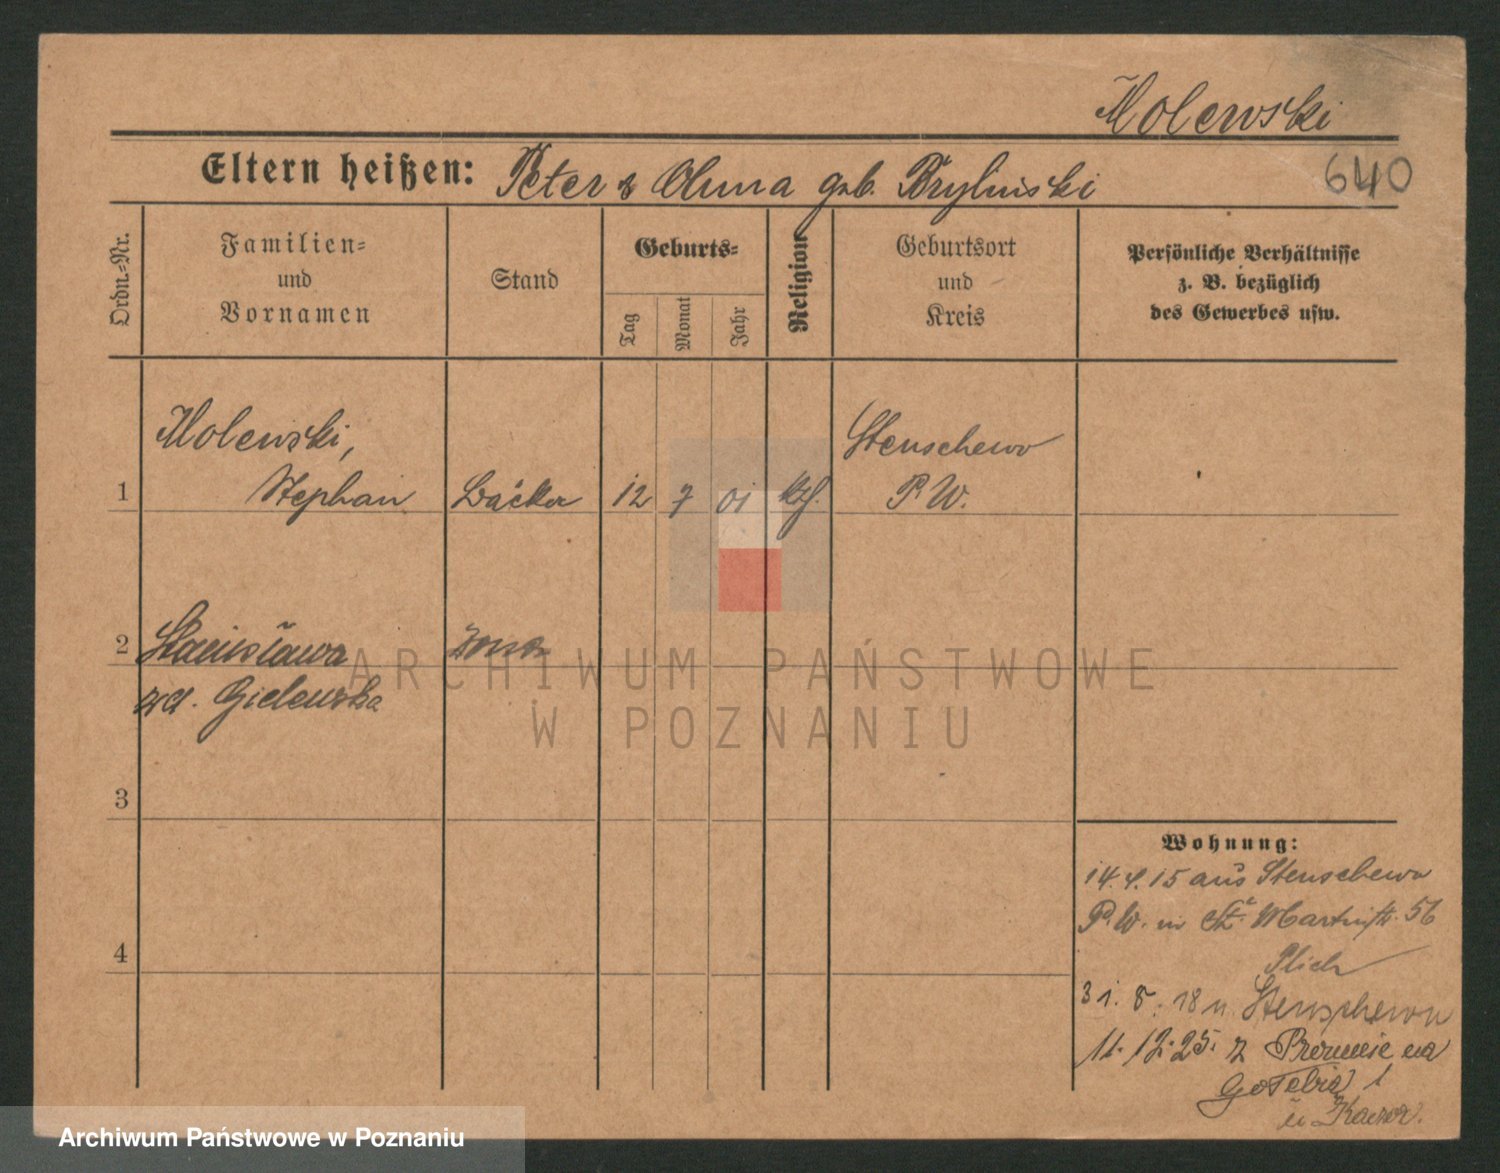 Molewski
640
Eltern heißen: Peter & Anna geb. Brylinski
Ordn.-Nr.
Familien-
und
Vornamen
Stand
Geburts-
Tag
Monat
Jahr
Religion
Geburtsort
und
Kreis
Persönliche Verhältnisse
z. B. bezüglich
des Gewerbes usw.
Molewski,
Stephan
1
Bäcker
12
7
01
kth.
Stenschewo
P. W.
2
Stanisława
zd. Gielewska
żona
3
4
Wohnung:
14.4.15 aus Stenschewo
P. W. in St. Martinstr. 56
Plich
31. 8. 18 n. Stenschewo
11. 12. 25. z na
Gołębia 1
u Kaczor.
ARCHIWUM PAŃSTWOWE
W POZNANIU
Archiwum Państwowe w Poznaniu